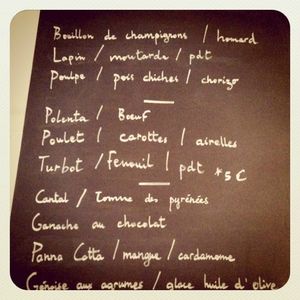 Bouillon de champignons / homard
Lapin / moutarde / pdt
Poulpe / pois chiches / chorizo
Polenta / Bœuf
Poulet / carottes / airelles
Turbot / fenouil / pdt *5€
Cantal / Tomme des pyrénées
Ganache au chocolat
Panna Cotta / mangue / cardamome
Génoise aux agrumes / glace huile d'olive